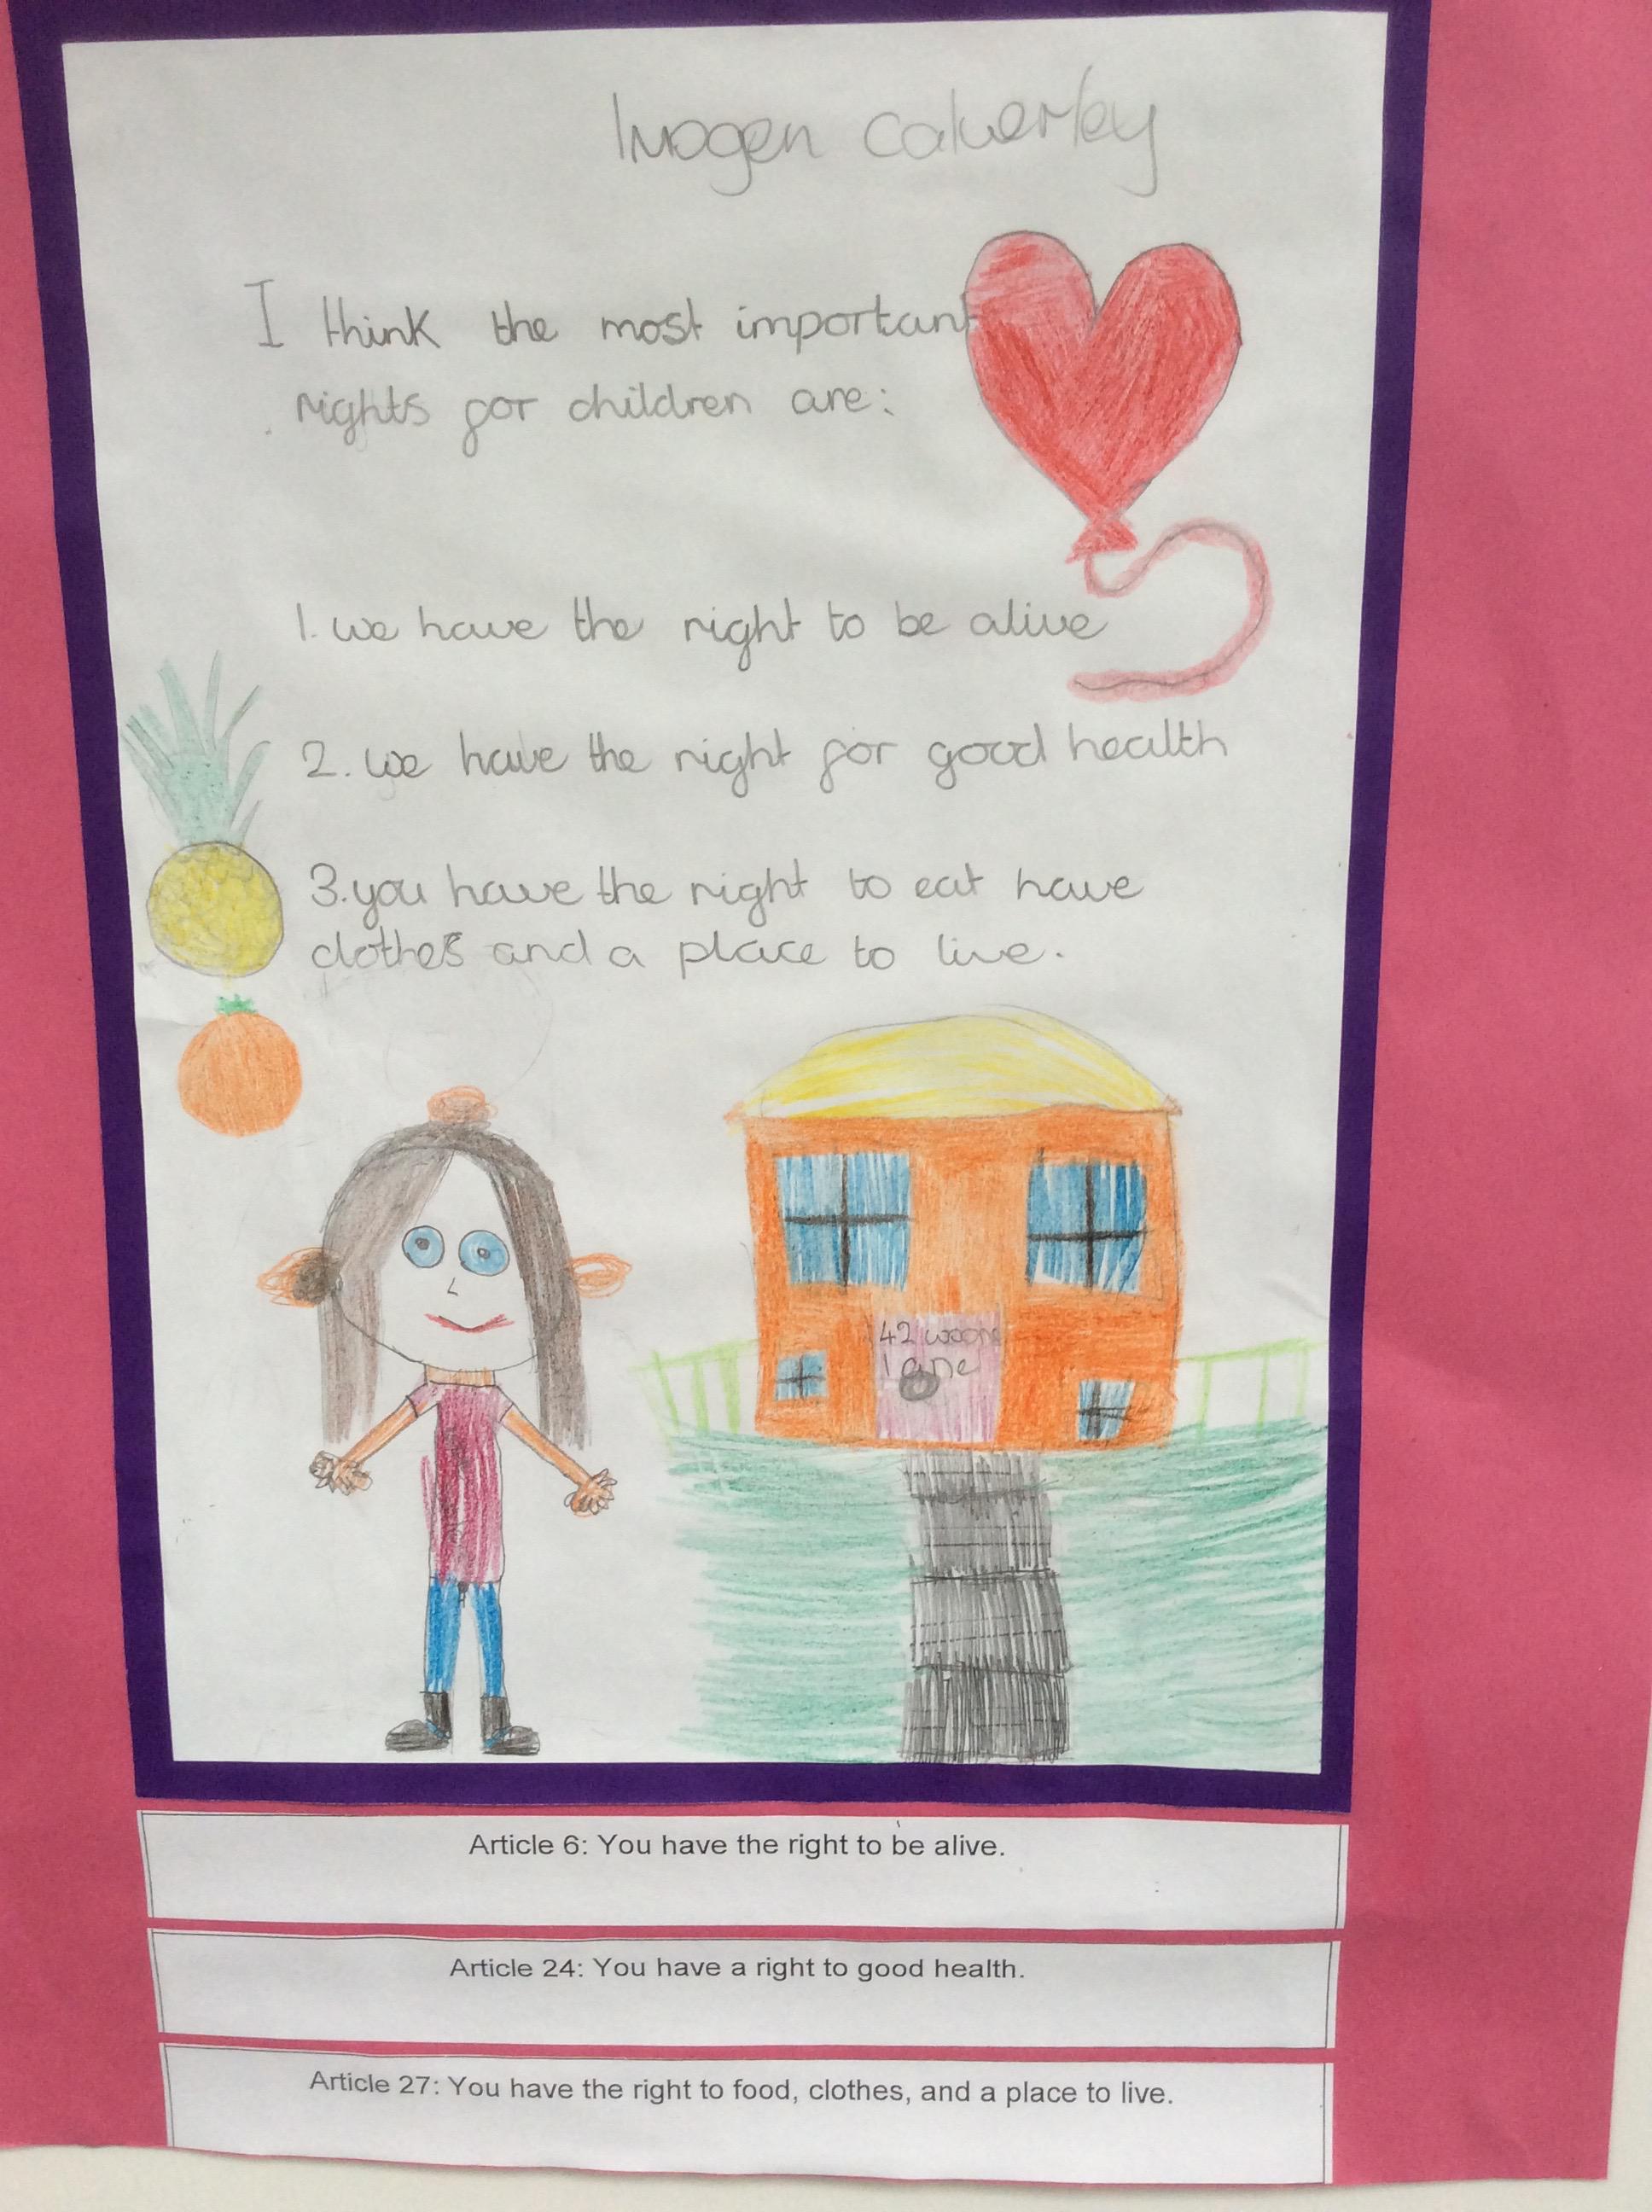 Imogen Calverley
I think the most important
rights for children are:
1. we have the right to be alive
2. we have the right for good health
3. you have the right to eat have
clothes and a place to live.
42
lane
Article 6: You have the right to be alive.
Article 24: You have a right to good health.
Article 27: You have the right to food, clothes, and a place to live.